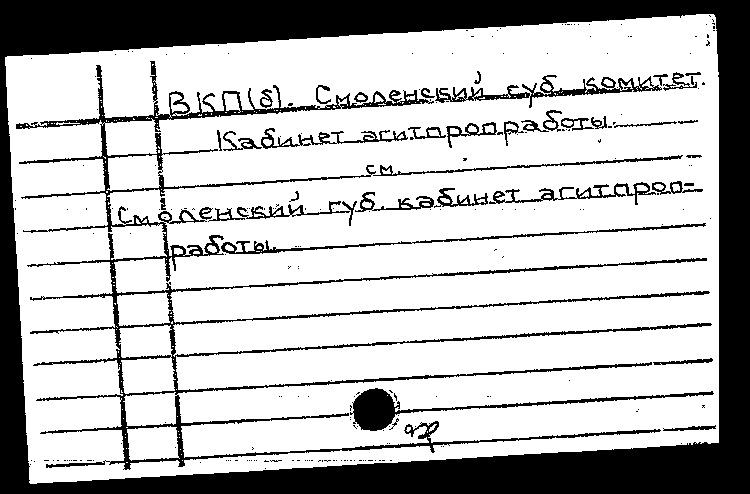 ВКП(б). Смоленский губ. комитет.
Кабинет агитпропработы.
см.
Смоленский губ. кабинет агитпроп-
работы.